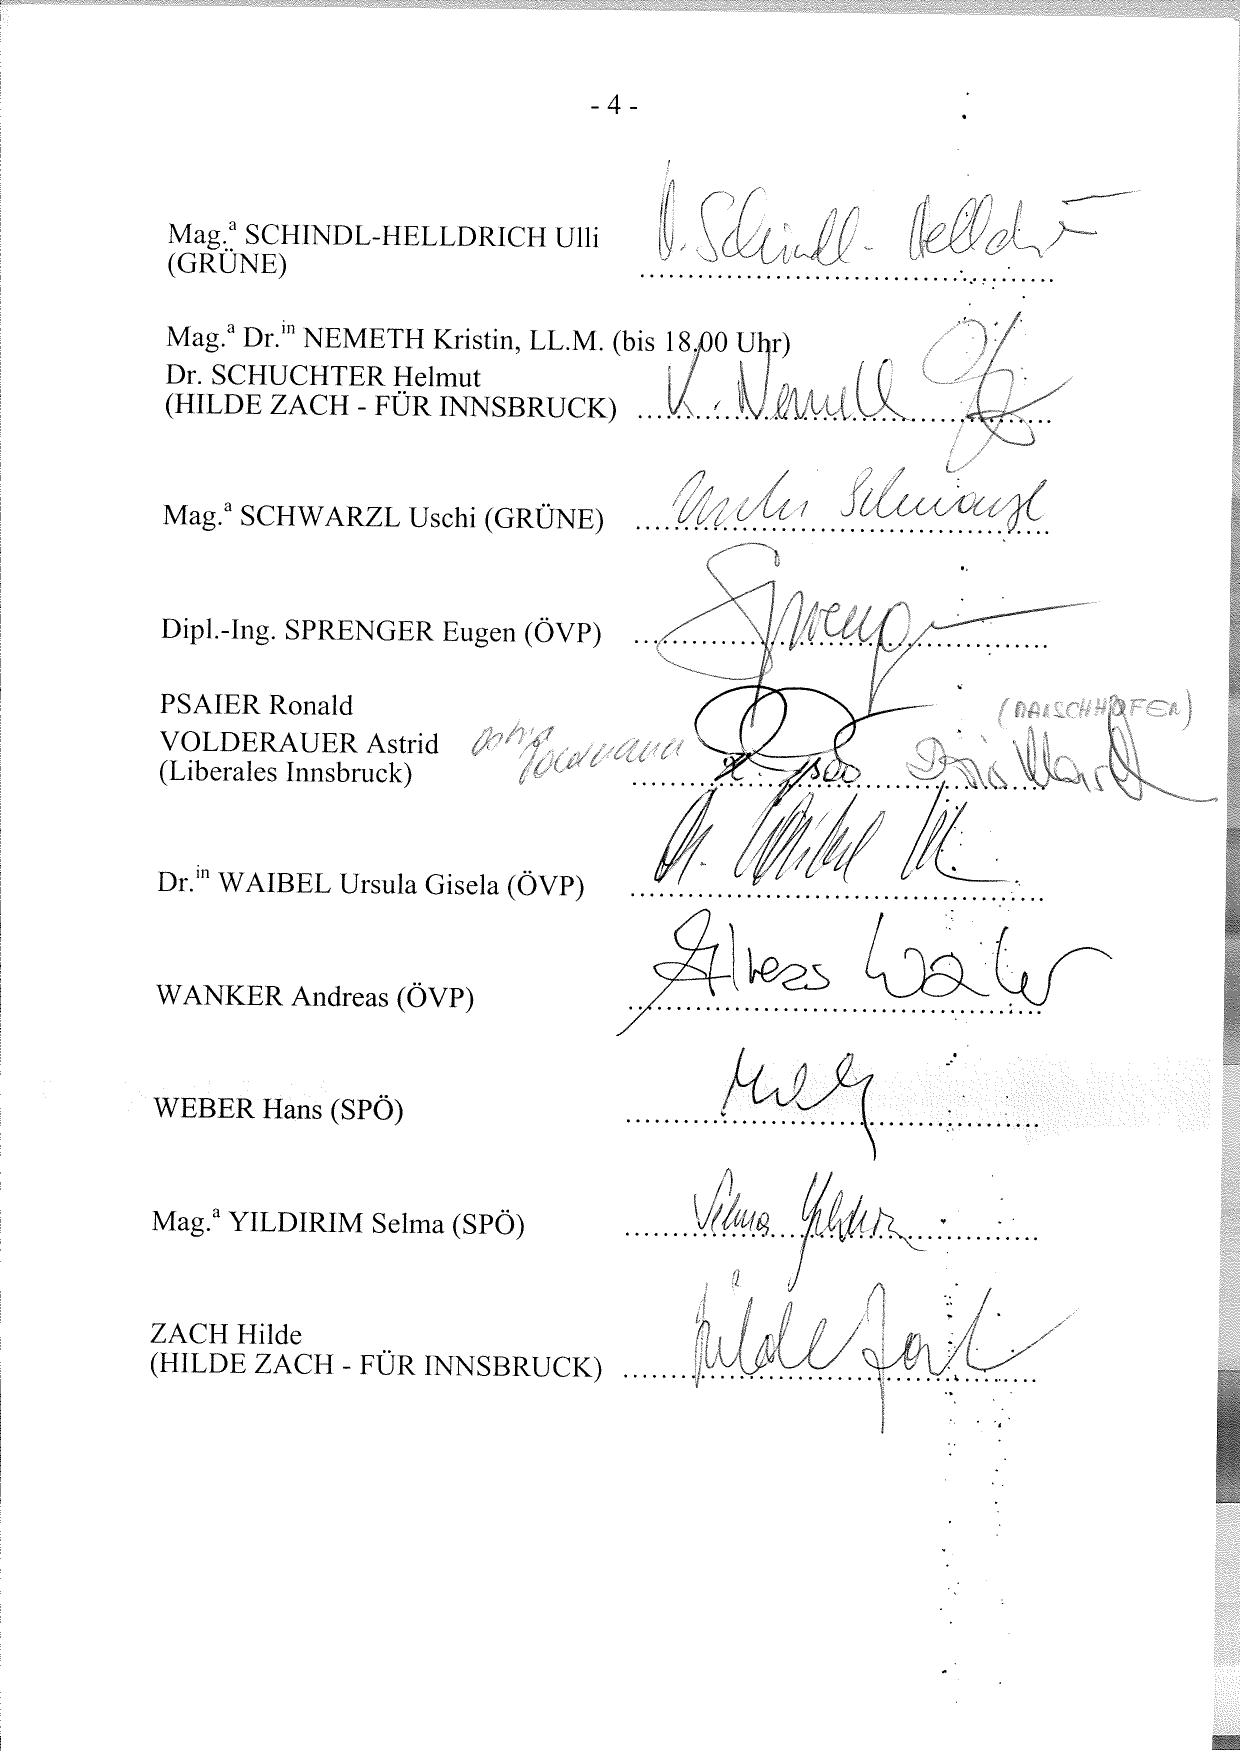 - 4 -
Mag.ª SCHINDL-HELLDRICH Ulli
(GRÜNE)
U. Schindl-Helldr
Mag.ª Dr.in NEMETH Kristin, LL.M. (bis 18.00 Uhr)
Dr. SCHUCHTER Helmut
(HILDE ZACH - FÜR INNSBRUCK)
K. Nemeth
Mag.ª SCHWARZL Uschi (GRÜNE)
Uschi Schwarzl
Dipl.-Ing. SPRENGER Eugen (ÖVP)
PSAIER Ronald
VOLDERAUER Astrid
(Liberales Innsbruck)
Dr.in WAIBEL Ursula Gisela (ÖVP)
WANKER Andreas (ÖVP)
Andreas Wanker
WEBER Hans (SPÖ)
Mag.ª YILDIRIM Selma (SPÖ)
Selma Yildirim
ZACH Hilde
(HILDE ZACH - FÜR INNSBRUCK)
Hilde Zach